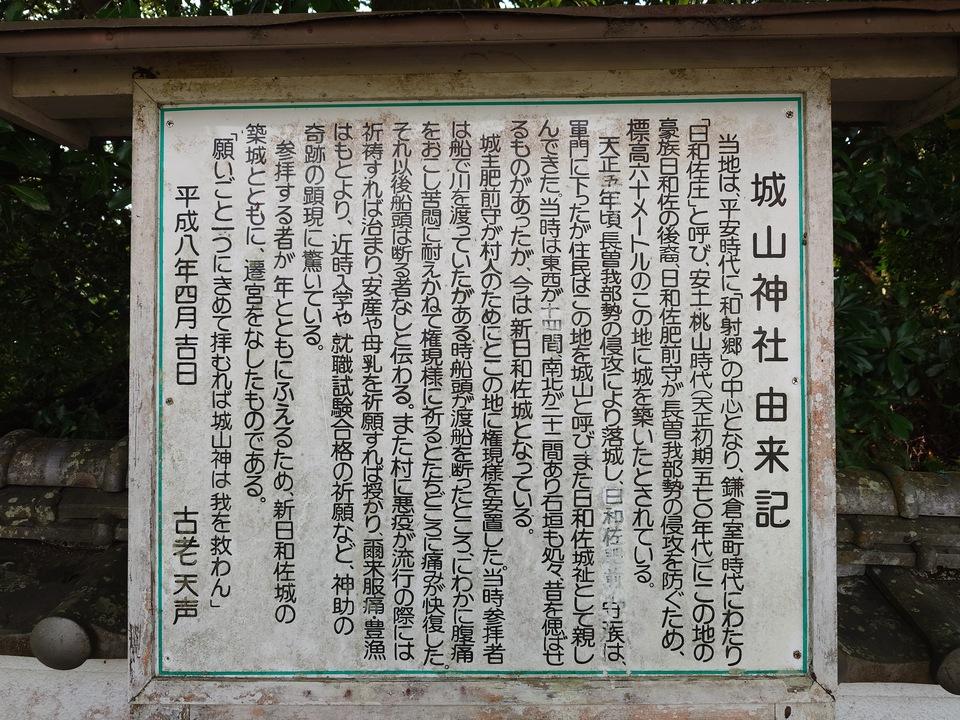 城山神社 由来記
当地は、平安時代に「和射郷」の中心となり、鎌倉室町時代にわたり
「日和佐庄」と呼び、安土桃山時代(天正初期五七〇年代)にこの地の
豪族日和佐の後裔、日和佐肥前守が長曽我部勢の侵攻を防ぐため、
標高六十メートルのこの地に城を築いたとされている。
天正五年頃、長曽我部勢の侵攻により落城し、日和佐肥前守一族は、
軍門に下ったが住民はこの地を城山と呼びまた日和佐城祉として親し
んできた。当時は東西が 間、南北が二十二間あり石垣も処々、昔を偲ばせ
るものがあったが、今は新日和佐城となっている。
城主肥前守が村人のためにとこの地に権現様を安置した。当時参拝者
は船で川を渡っていたがある時船頭が渡船を断ったところにわかに腹痛
をおこし苦悶に耐えかねて権現様に祈るとたちどころに痛みが快復した。
それ以後船頭は断る者なしと伝わる。また村に悪疫が流行の際には
祈祷すれば治まり、安産や母乳を祈願すれば授かり、爾来服痛・豊漁
はもとより、近時入学や就職試験合格の祈願など、神助の
奇跡の顕現に驚いている。
参拝する者が年とともにふえるため、新日和佐城の
築城とともに、遷宮をなしたものである。
「願いごと一つにきめて拝むれば城山神は我を救わん」
平成八年四月吉日 古老天声